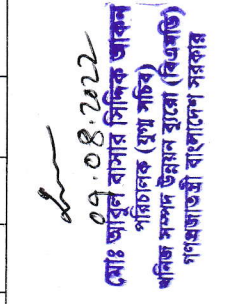 09.08.2022
(মোঃ আবুল বাসার সিদ্দিক আকন
পরিচালক (যুগ্ম সচিব)
খনিজ সম্পদ উন্নয়ন ব্যুরো (বিএমডি)
গণপ্রজাতন্ত্রী বাংলাদেশ সরকার